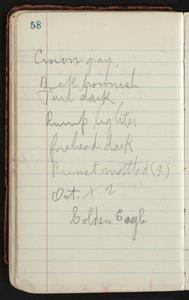 58
Crown gray.
Back brownish
Tail dark
Rump lighter
forehead dark
Breast mottled (?)
Oct. X 2
Golden Eagle